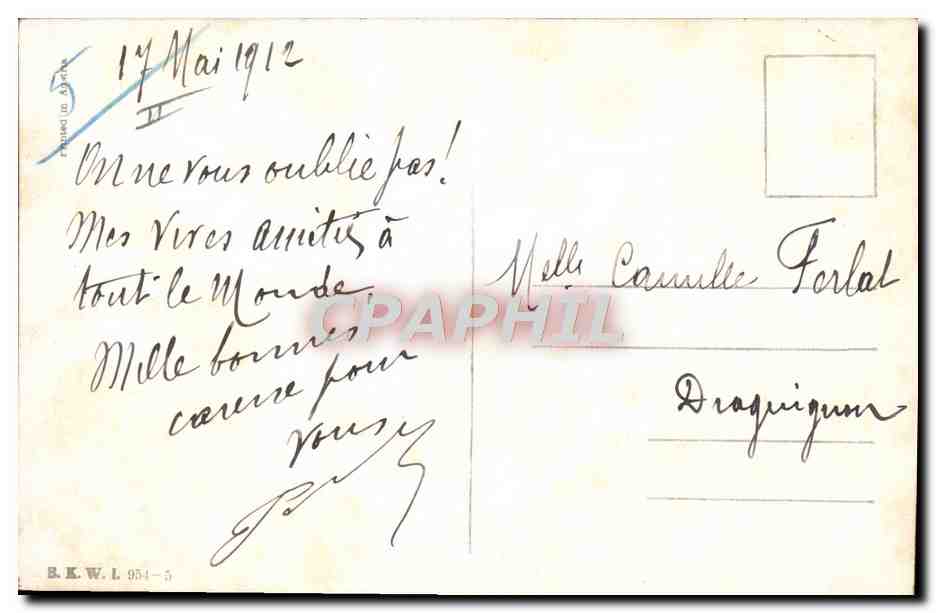 17 Mai 1912
II
5
Printed in Austria
On ne vous oublie pas!
Mes vives amitiés à
tout le Monde.
Mille bonnes
caresse pour
vous
Melle Camille Ferlat
Draguignan
CPAPHIL
B. K. W. I. 954-5